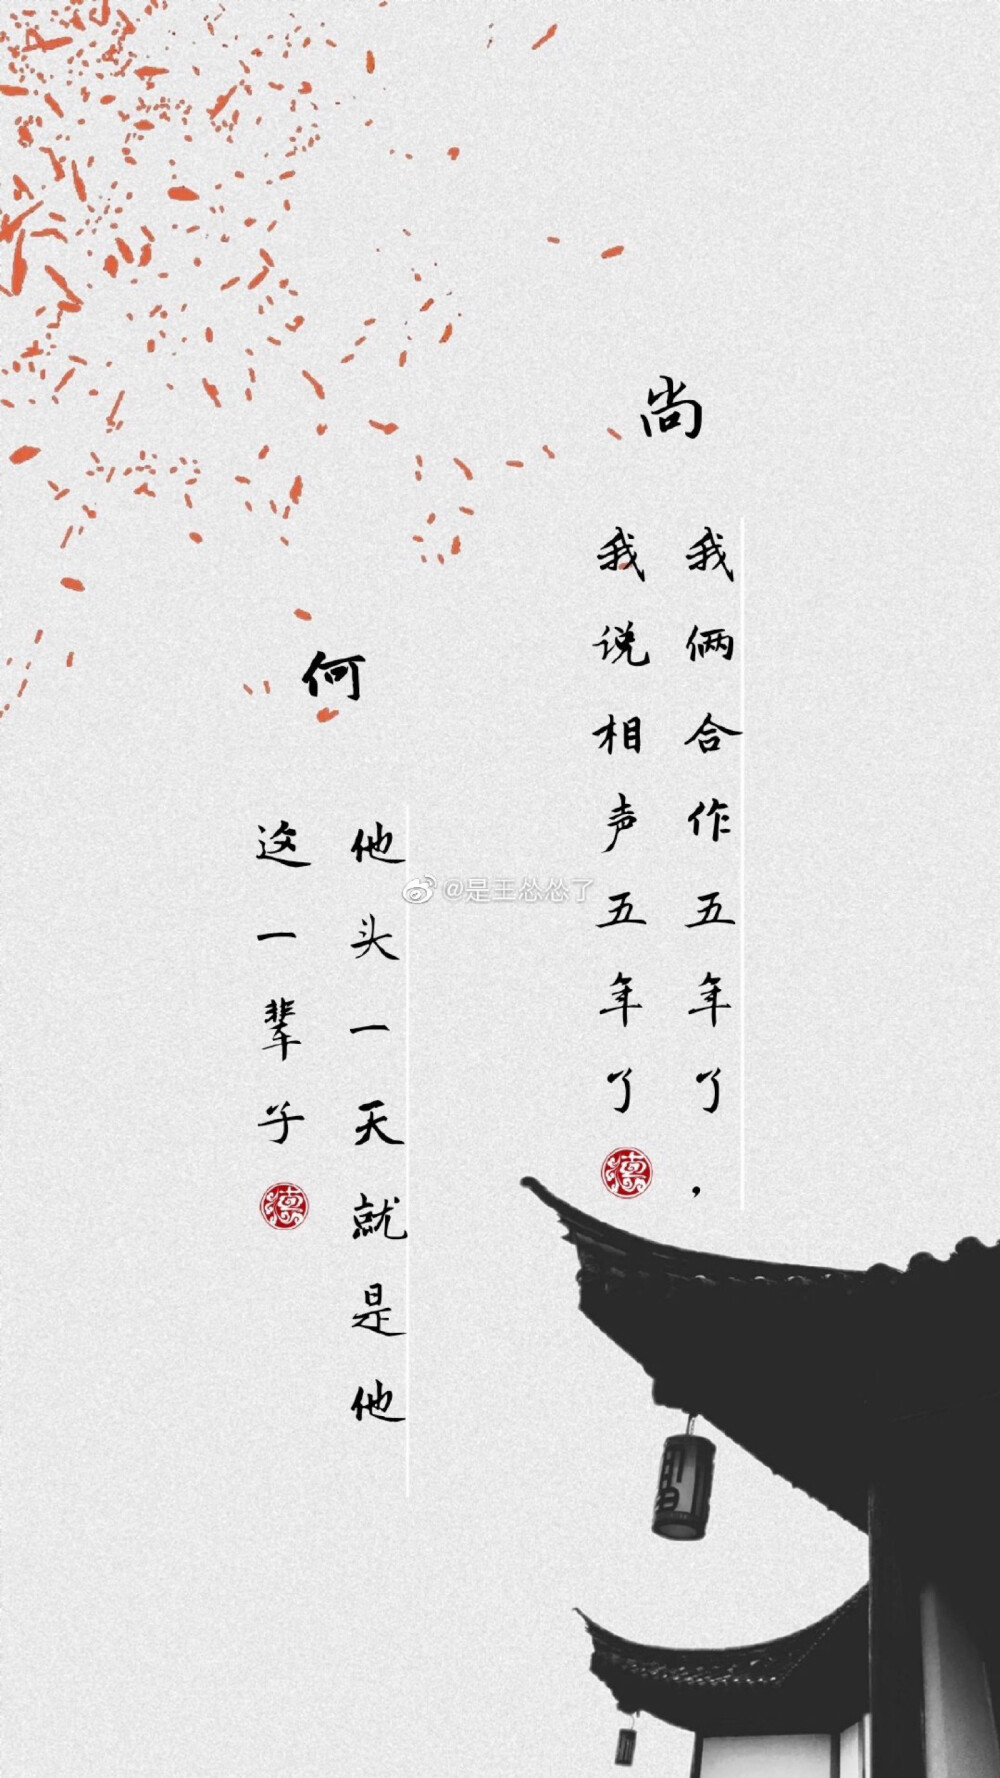 尚
我俩合作五年了，
我说相声五年了
德
何
他头一天就是他
这一辈子
德
@是王怂怂了